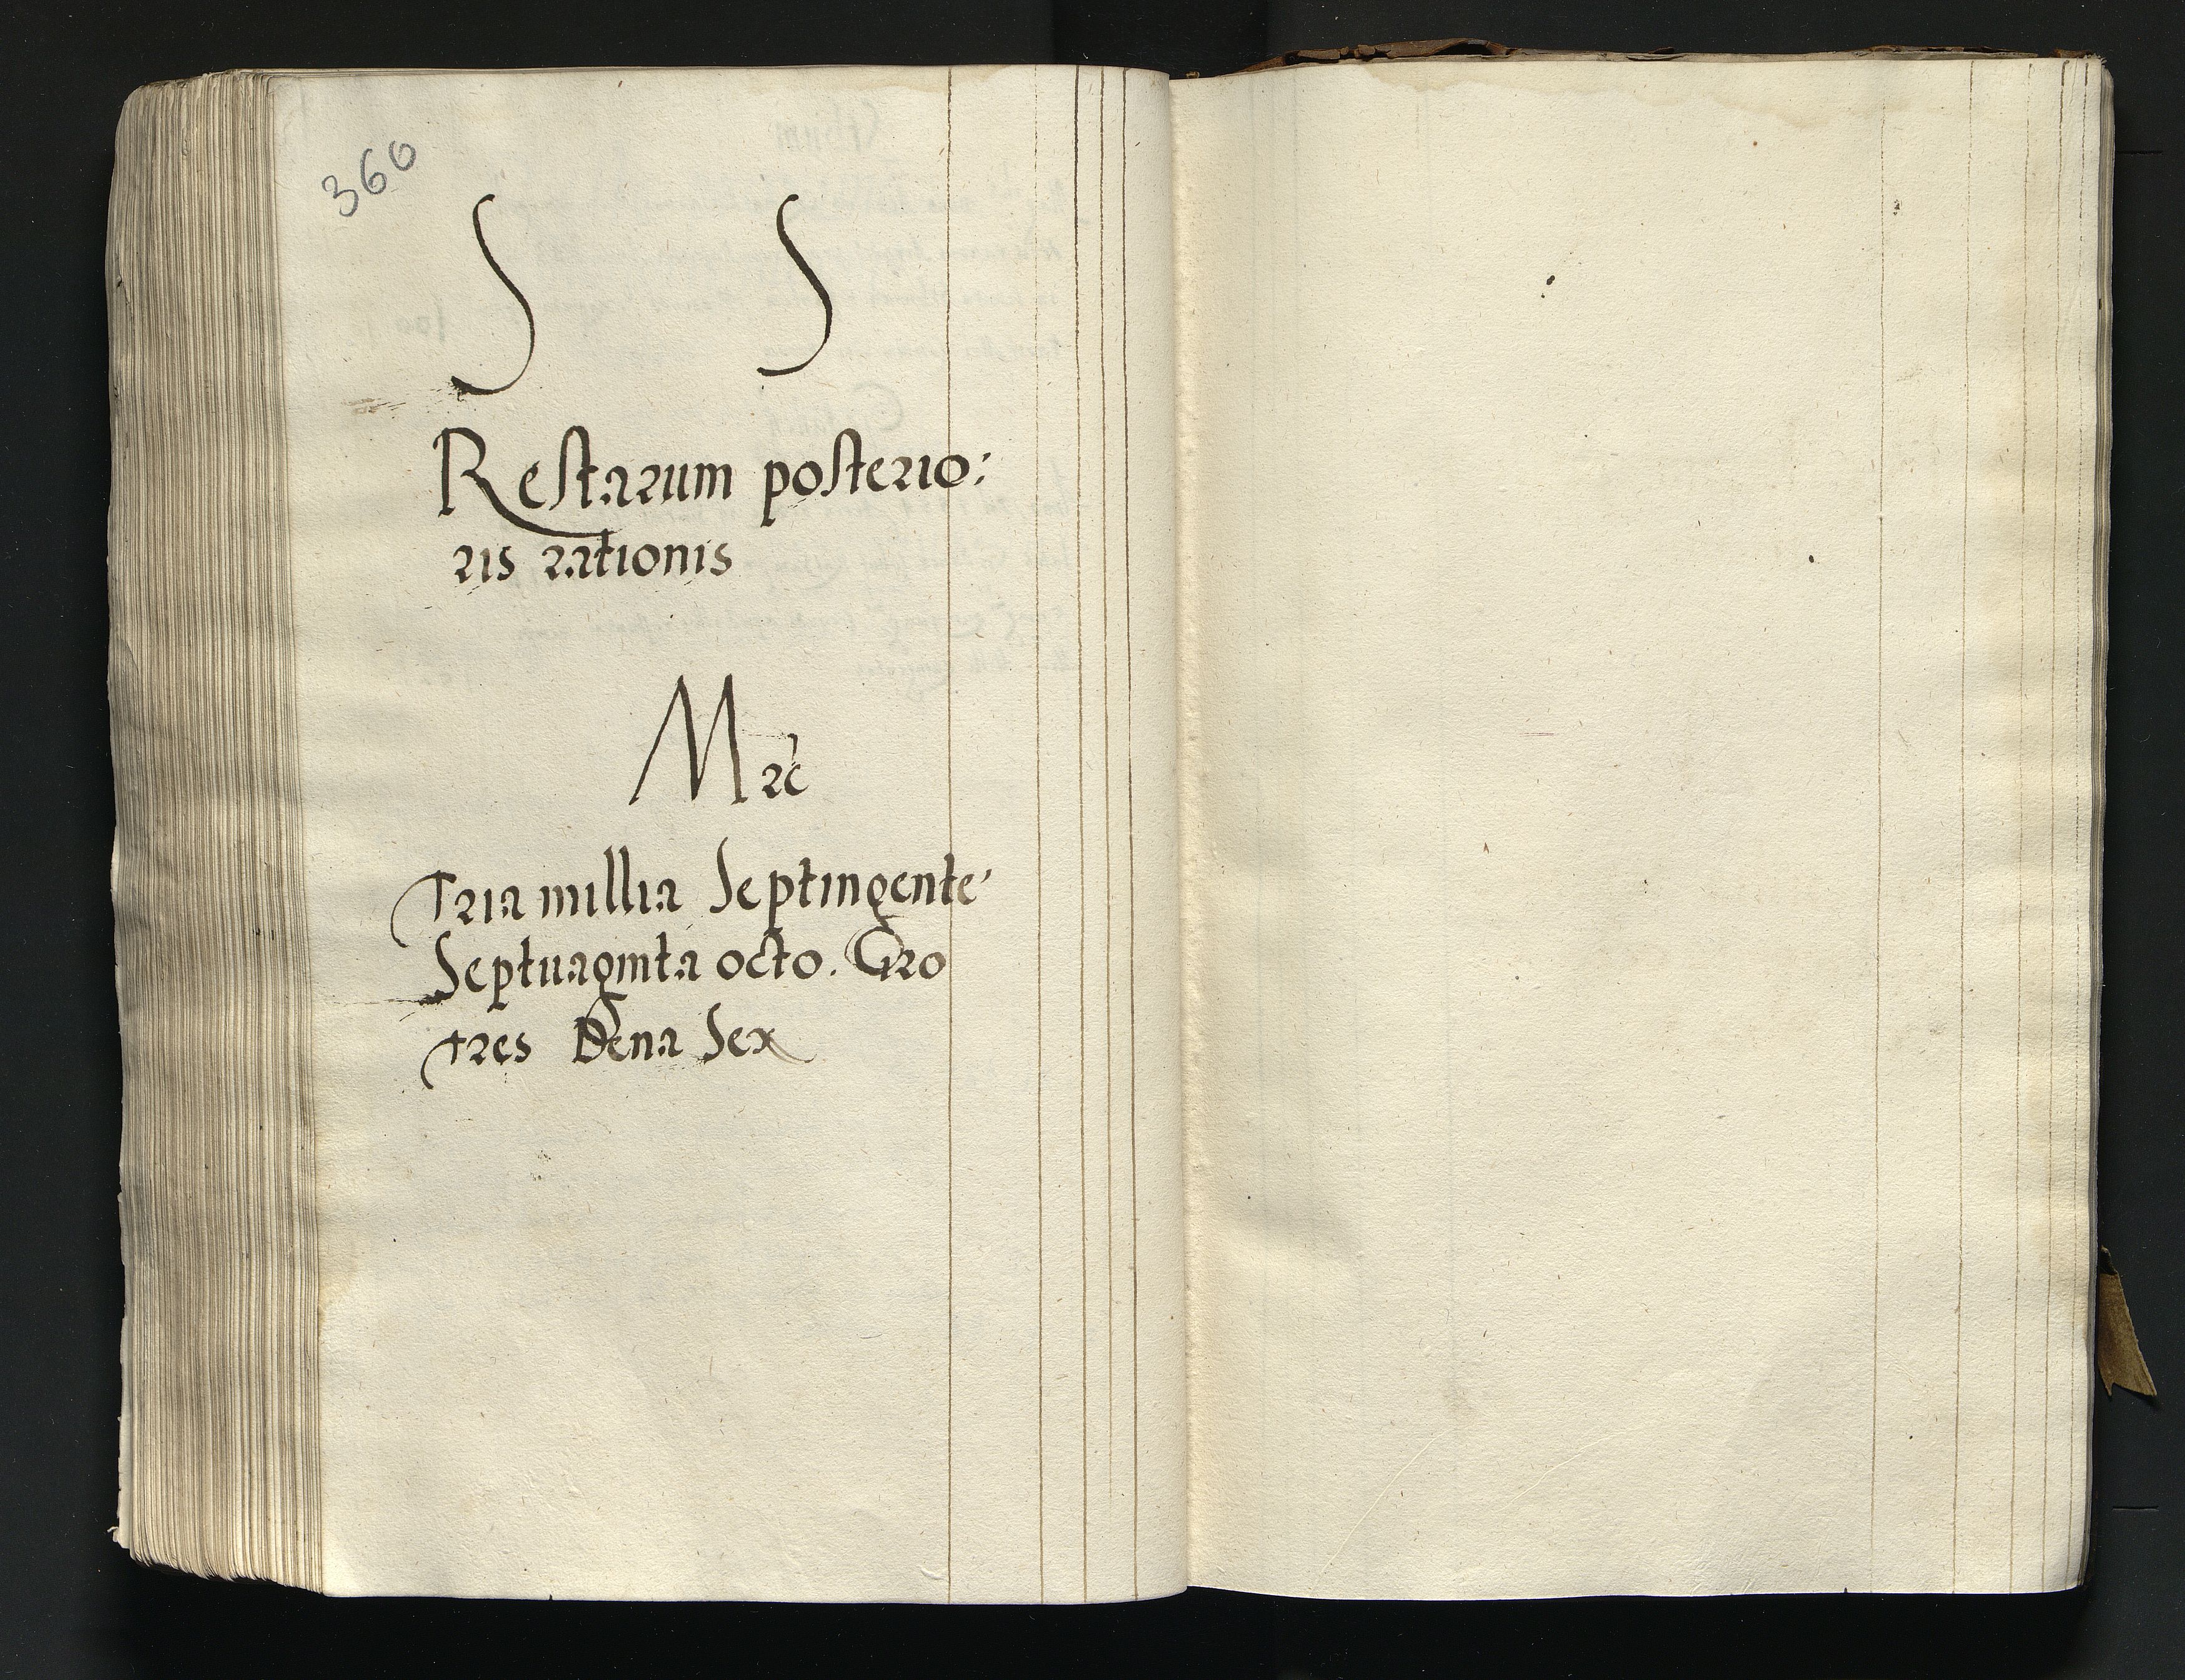 360
S S
Restarum posterio:
ris rationis
Mrc
Tria millia Septingente'
Septuaginta octo. Gro
tres Dena Sex